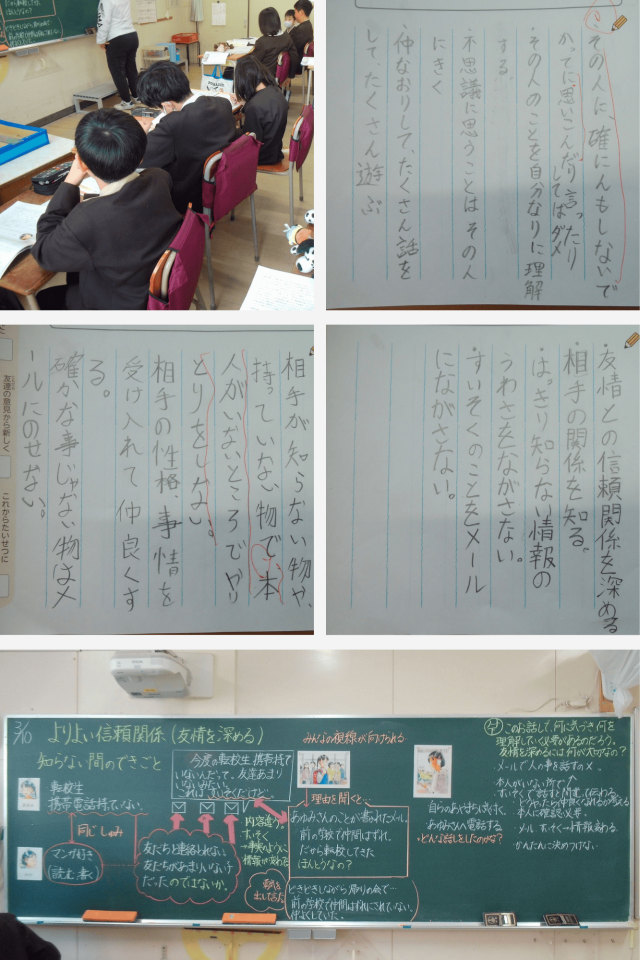 その人に、確にんもしないで
かってに思いこんだり言ったり
してはダメ
・その人のことを自分なりに理解
する。
・不思議に思うことはその人
にきく
・仲なおりして、たくさん話を
して、たくさん遊ぶ
相手が知らない物や、
持っていない物で本
人がいないところでやり
とりをしない。
相手の性格、事情を
受け入れて仲良くす
る。
確かな事じゃない物はメ
ールにのせない。
友達の意見から新しく
これからたいせつに
・友情との信頼関係を深める
・相手の関係を知る。
・はっきり知らない情報の
うわさをながさない。
・すいそくのことをメール
にながさない。
3/10
よりよい信頼関係(友情を深める)
知らない間のできごと
転校生
携帯電話持ってない。
同じしゅみ
マンガ好き
(読む書く)
今度の転校生携帯持て
いないんだって、友達あまり
いないみたい。
これはすいそくだけど。
友だちと連絡とれない
友だちがあまりいない子
だったのではないか。
内容違う。
すいそく
→事実のように
情報が変わる
みんなの視線が向けられる
理由を聞くと、
あゆみさんのことが書かれたメール。
前の学校で仲間はずれ。
だから転校してきた
ほんとうなの?
勇気を
出して言った
どきどきしながら帰りの会で…
前の学校で仲間はずれにされていない。
仲よくしていた。
あゆみさんへ電話する
・どんな話をしたのかな?
このお話して、何に気づき何を
理解していく必要があるのだろう。
友情を深めるには何が大切かな?
・メールで人の事を話すのは×
本人がいない所で
すいそくで話すと間違って伝わる
本人に確認必要。
かんたんに決めつけない